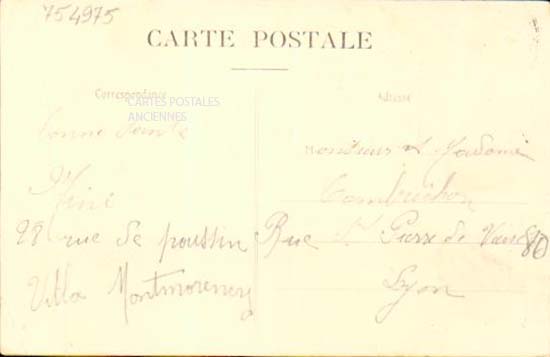 754975
CARTE POSTALE
Correspondance
Adresse
CARTES POSTALES
ANCIENNES
Bonne Sainte
28 rue de poussin
Villa Montmorency
Monsieur et Madame
Rue St Pierre de Vaise
80
Lyon